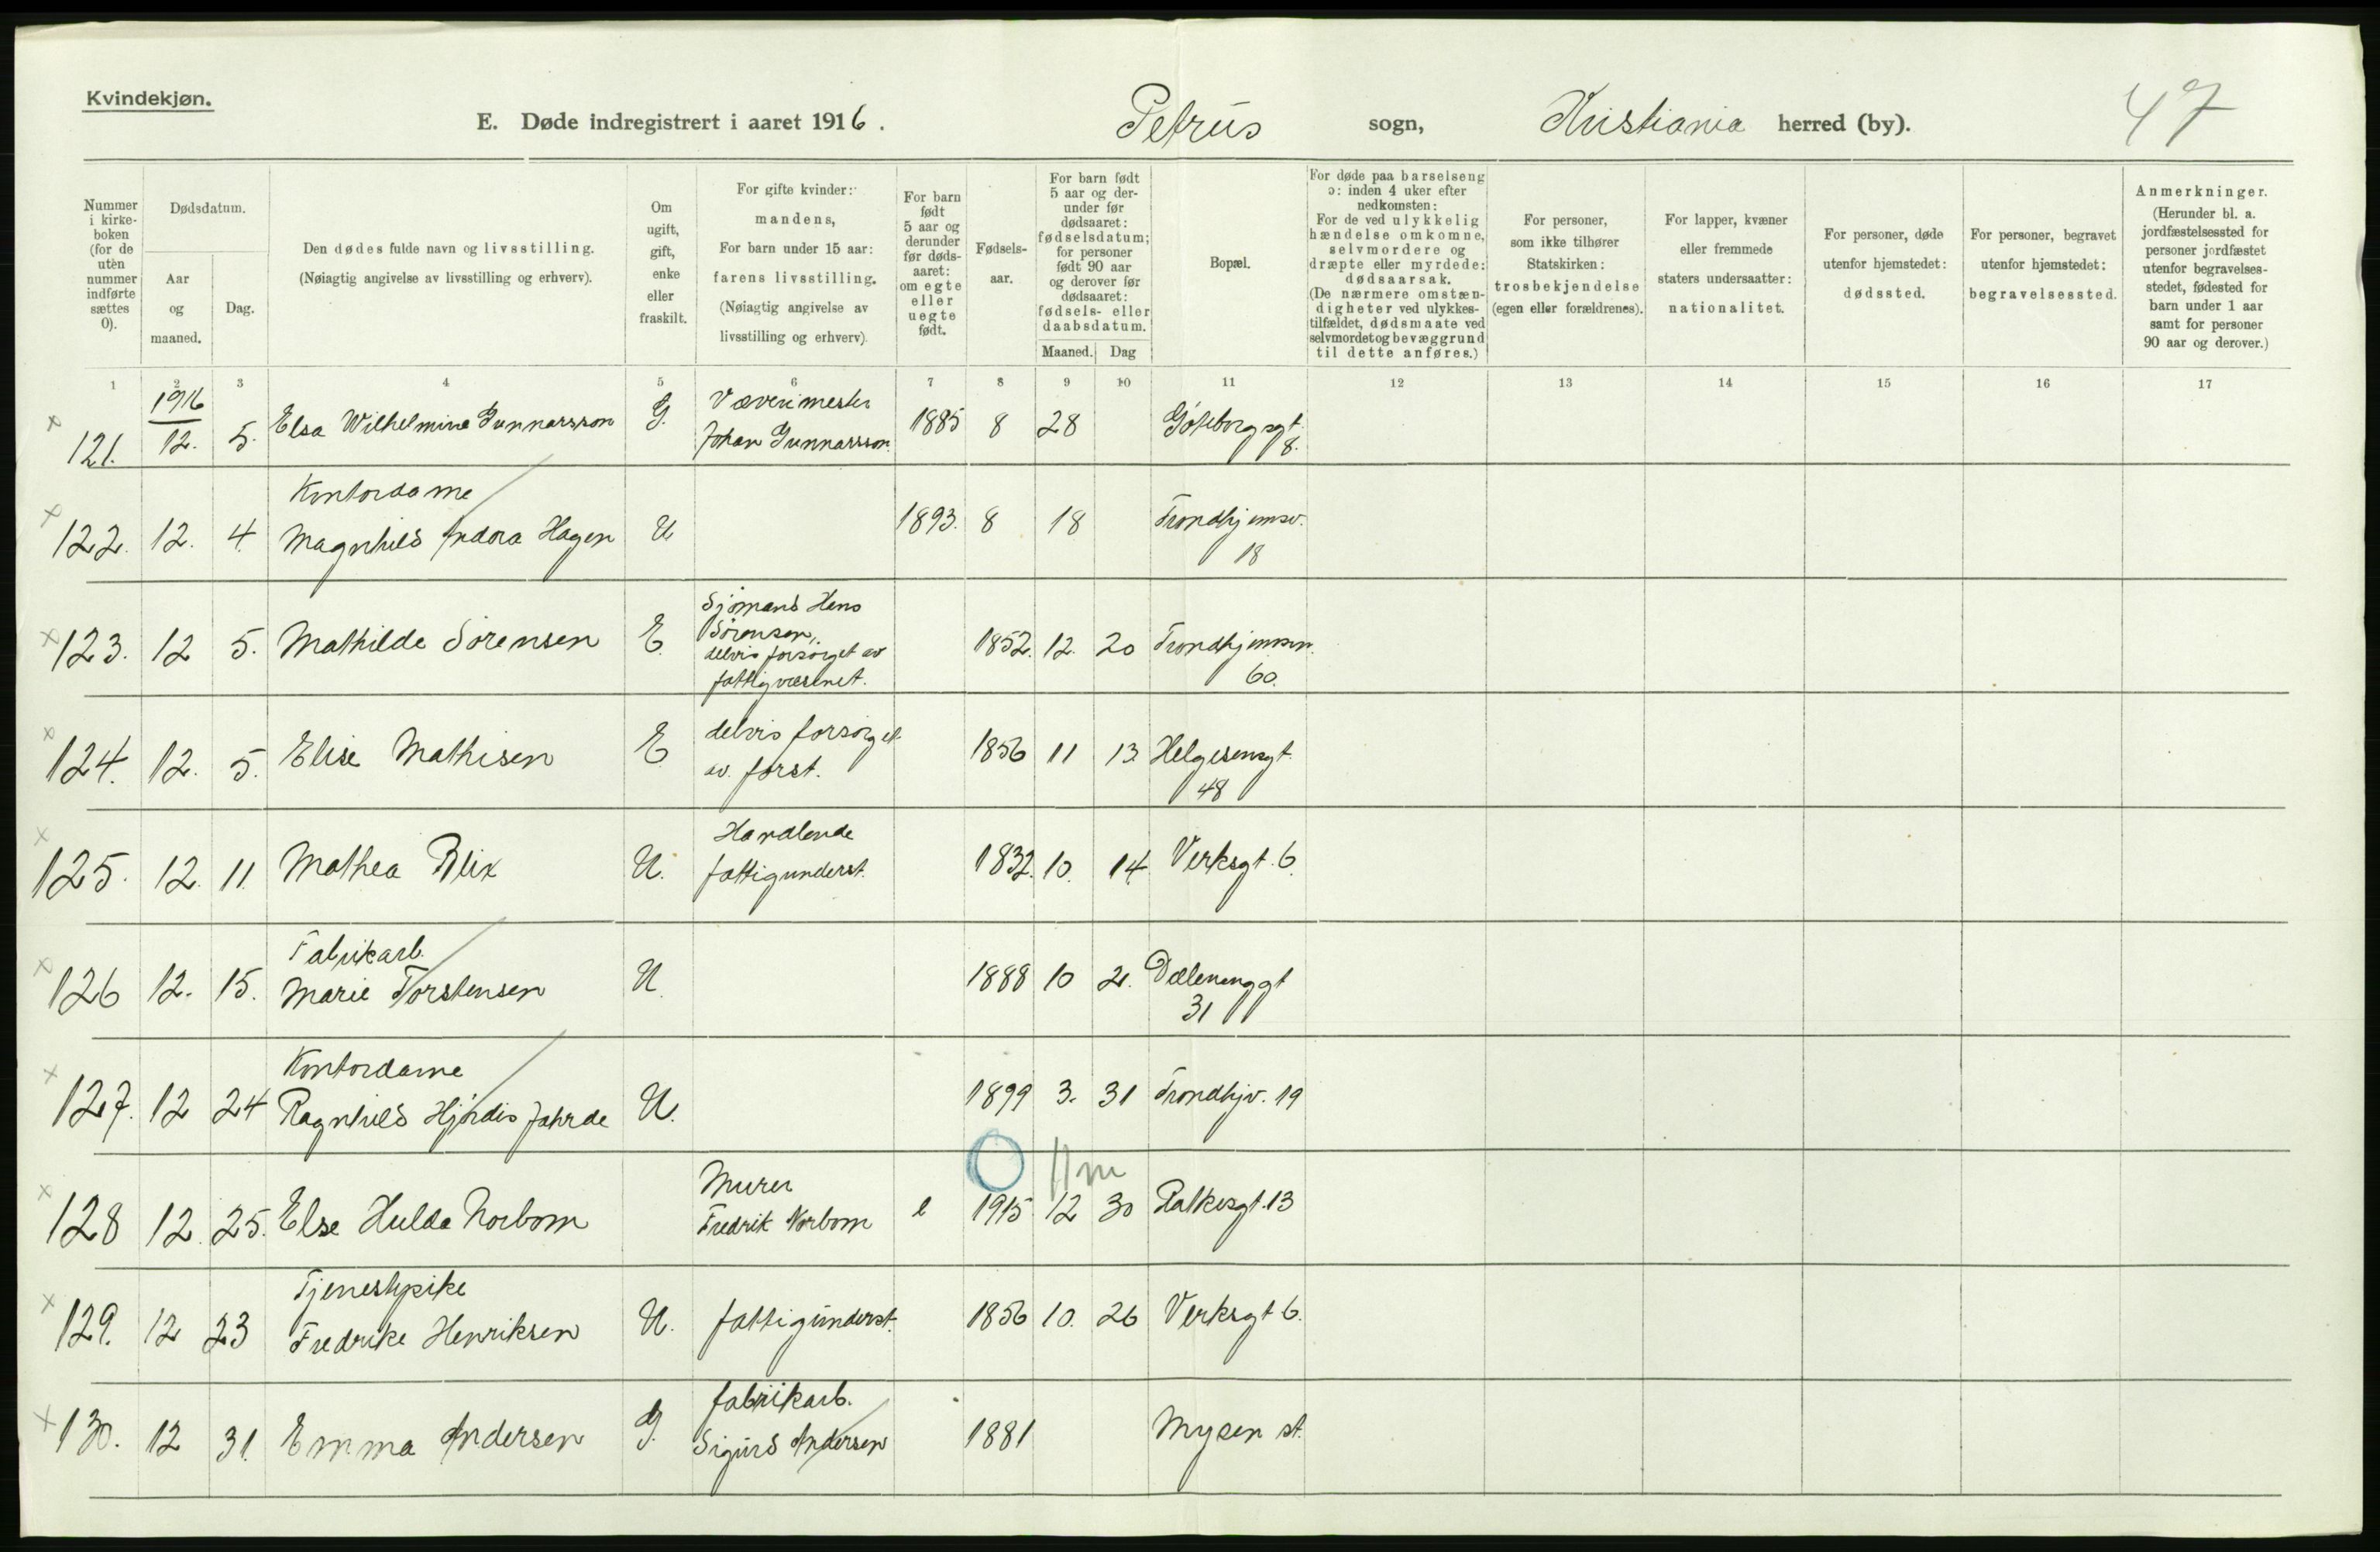 Kvindekjøn.
E. Døde indregistrert i aaret 1916. Petrus sogn, Kristiania herred (by). 47
Nummer i kirkeboken (for de uten nummer indførte sættes 0).
Dødsdatum.
Aar og maaned.
Dag.
Den dødes fulde navn og livsstilling.
(Nøiagtig angivelse av livsstilling og erhverv).
Om ugift, gift, enke eller fraskilt.
For gifte kvinder:
mandens,
For barn under 15 aar:
farens livsstilling.
(Nøiagtig angivelse av
livsstilling og erhverv)
For barn født 5 aar og derunder før dødsaaret: om egte eller uegte født.
Fødselsaar.
For barn født 5 aar og derunder før dødsaaret: fødselsdatum; for personer født 90 aar og derover før dødsaaret: fødsels- eller daabsdatum.
Maaned. Dag
Bopæl.
For døde paa barselseng
ɔ: inden 4 uker efter
nedkomsten:
For de ved ulykkelig
hændelse omkomne,
selvmordere og
dræpte eller myrdede:
dødsaarsak.
(De nærmere omstæn-
digheter ved ulykkes-
tilfældet, dødsmaate ved
selvmordet og bevæggrund
til dette anføres.)
For personer,
som ikke tilhører
Statskirken:
trosbekjendelse
(egen eller forældrenes).
For lapper, kvæner
eller fremmede
staters undersaatter:
nationalitet.
For personer, døde
utenfor hjemstedet:
dødssted.
For personer, begravet
utenfor hjemstedet:
begravelsessted.
Anmerkninger.
(Herunder bl. a.
jordfæstelsessted for
personer jordfæstet
utenfor begravelses-
stedet, fødested for
barn under 1 aar
samt for personer
90 aar og derover.)
1 2 3 4 5 6 7 8 9 10 11 12 13 14 15 16 17
1916
Væverimester
x 121. 12. 5. Elsa Wilhelmine Gunnarsson G. Johan Gunnarsson 1885 8 28 Göteborgsgt. 8.
Kontordame
x 122. 12. 4. Magnhild Indora Hagen U 1893. 8 18 Trondhjemsv. 18
Sjømand Hans
Sörensen,
delvis forsörget av
fattigvæsenet.
x 123. 12 5. Mathilde Sörensen E. 1852. 12. 20 Trondhjemsvn. 60.
delvis forsörget
av. forst.
x 124. 12. 5. Elise Mathisen E 1856 11 13. Helgesensgt. 48
Handlende
fattigunderst.
x 125. 12. 11. Mathea Blix U. 1832. 10. 14. Verksgt. 6.
Fabrikarb.
x 126 12. 15. Marie Torstensen U. 1888 10 21. Dælenenggt 31
Kontordame
x 127. 12 24 Ragnhild Hjördis Jahrde U. 1899 3. 31 Trondhjv. 19
0 11 m
Murer
x 128 12. 25. Else Hulda Norbom Fredrik Norbom e 1915 12 30 Falkesgt. 13
Tjenestepike
x 129. 12 23 Fredrike Henriksen U. fattigunderst. 1856 10. 26 Verksgt 6.
fabrikarb.
x 130. 12 31. Emma Andersen G. Sigurd Andersen 1881 Mysen st.